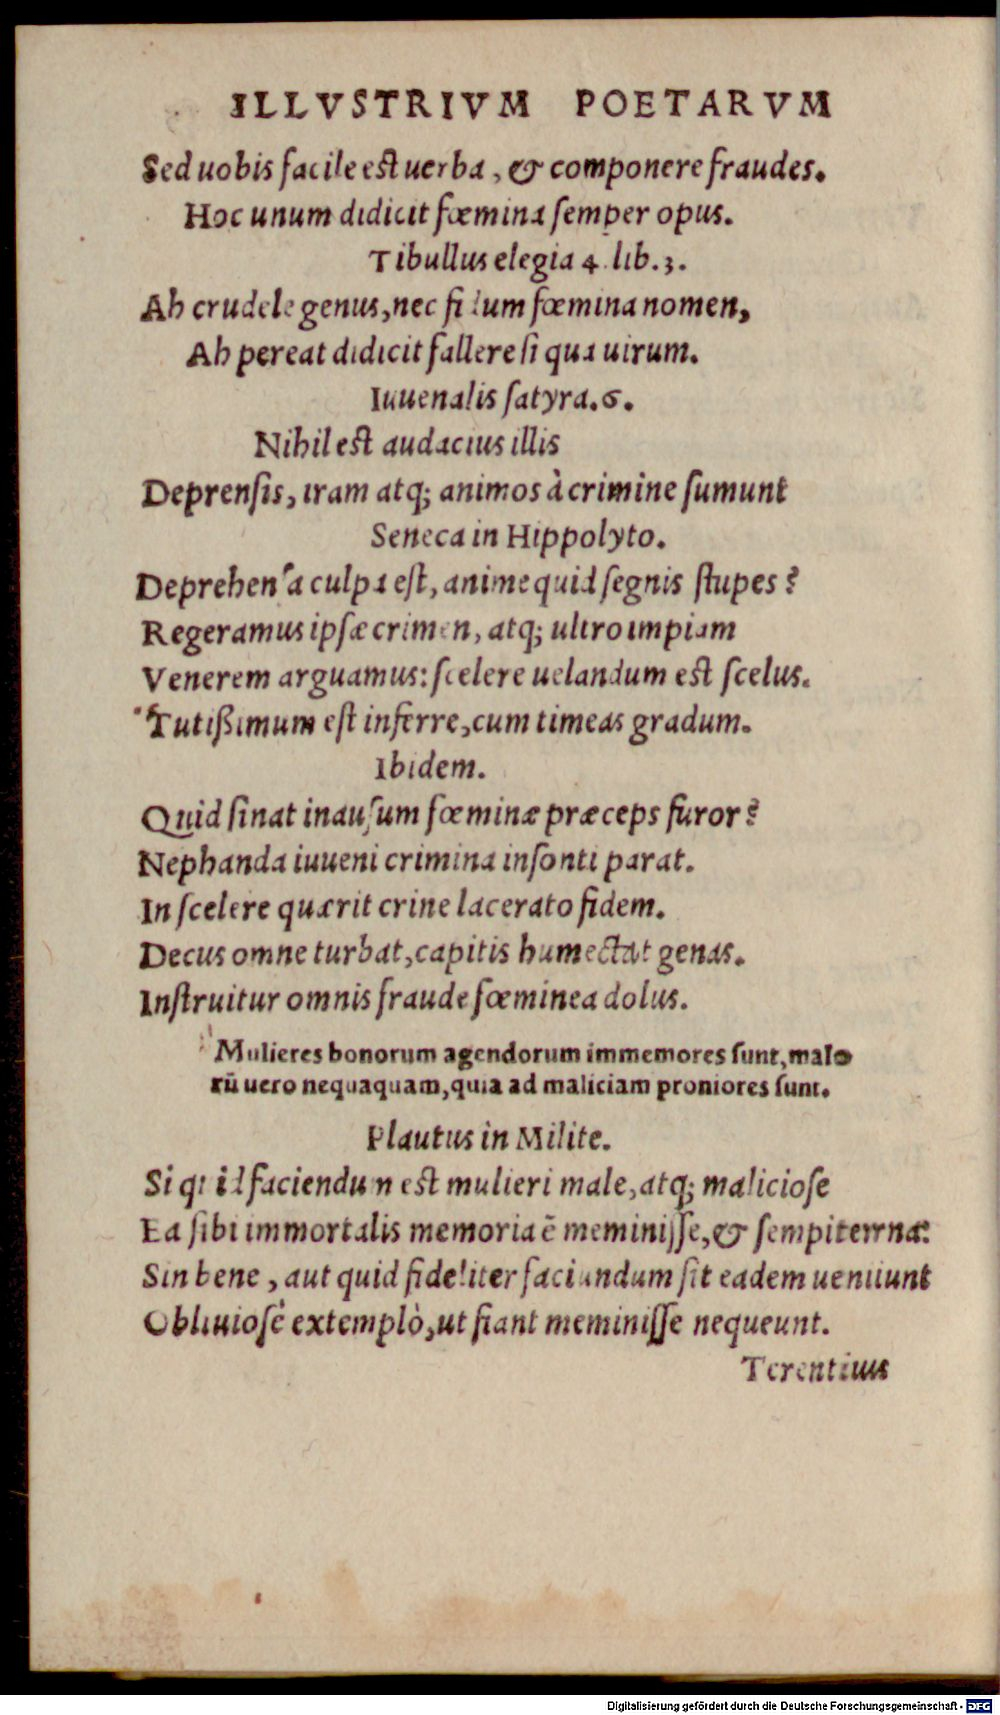 ILLVSTRIVM POETARVM
Sed uobis facile est uerba, & componere fraudes.
Hoc unum didicit fœmina semper opus.
Tibullus elegia 4. lib.3.
Ah crudele genus, nec fidum fœmina nomen,
Ah pereat didicit fallere si qua uirum.
Iuuenalis satyra.6.
Nihil est audacius illis
Deprensis, iram atq; animos à crimine sumunt
Seneca in Hippolyto.
Deprehensa culpa est, anime quid segnis stupes?
Regeramus ipsæ crimen, atq; ultro impiam
Venerem arguamus: scelere uelandum est scelus.
Tutißimum est inferre, cum timeas gradum.
Ibidem.
Quid sinat inausum fœminæ præceps furor?
Nephanda iuueni crimina insonti parat.
In scelere quærit crine lacerato fidem.
Decus omne turbat, capitis humectat genas.
Instruitur omnis fraude fœminea dolus.
Mulieres bonorum agendorum immemores sunt, malo
rū uero nequaquam, quia ad maliciam proniores sunt.
Plautus in Milite.
Si quid faciendum est mulieri male, atq; maliciose
Ea sibi immortalis memoria ē meminisse, & sempiterna:
Sin bene, aut quid fideliter faciundum sit eadem ueniunt
Obliuiosè extemplò, ut fiant meminisse nequeunt.
Terentius
Digitalisierung gefördert durch die Deutsche Forschungsgemeinschaft - DFG